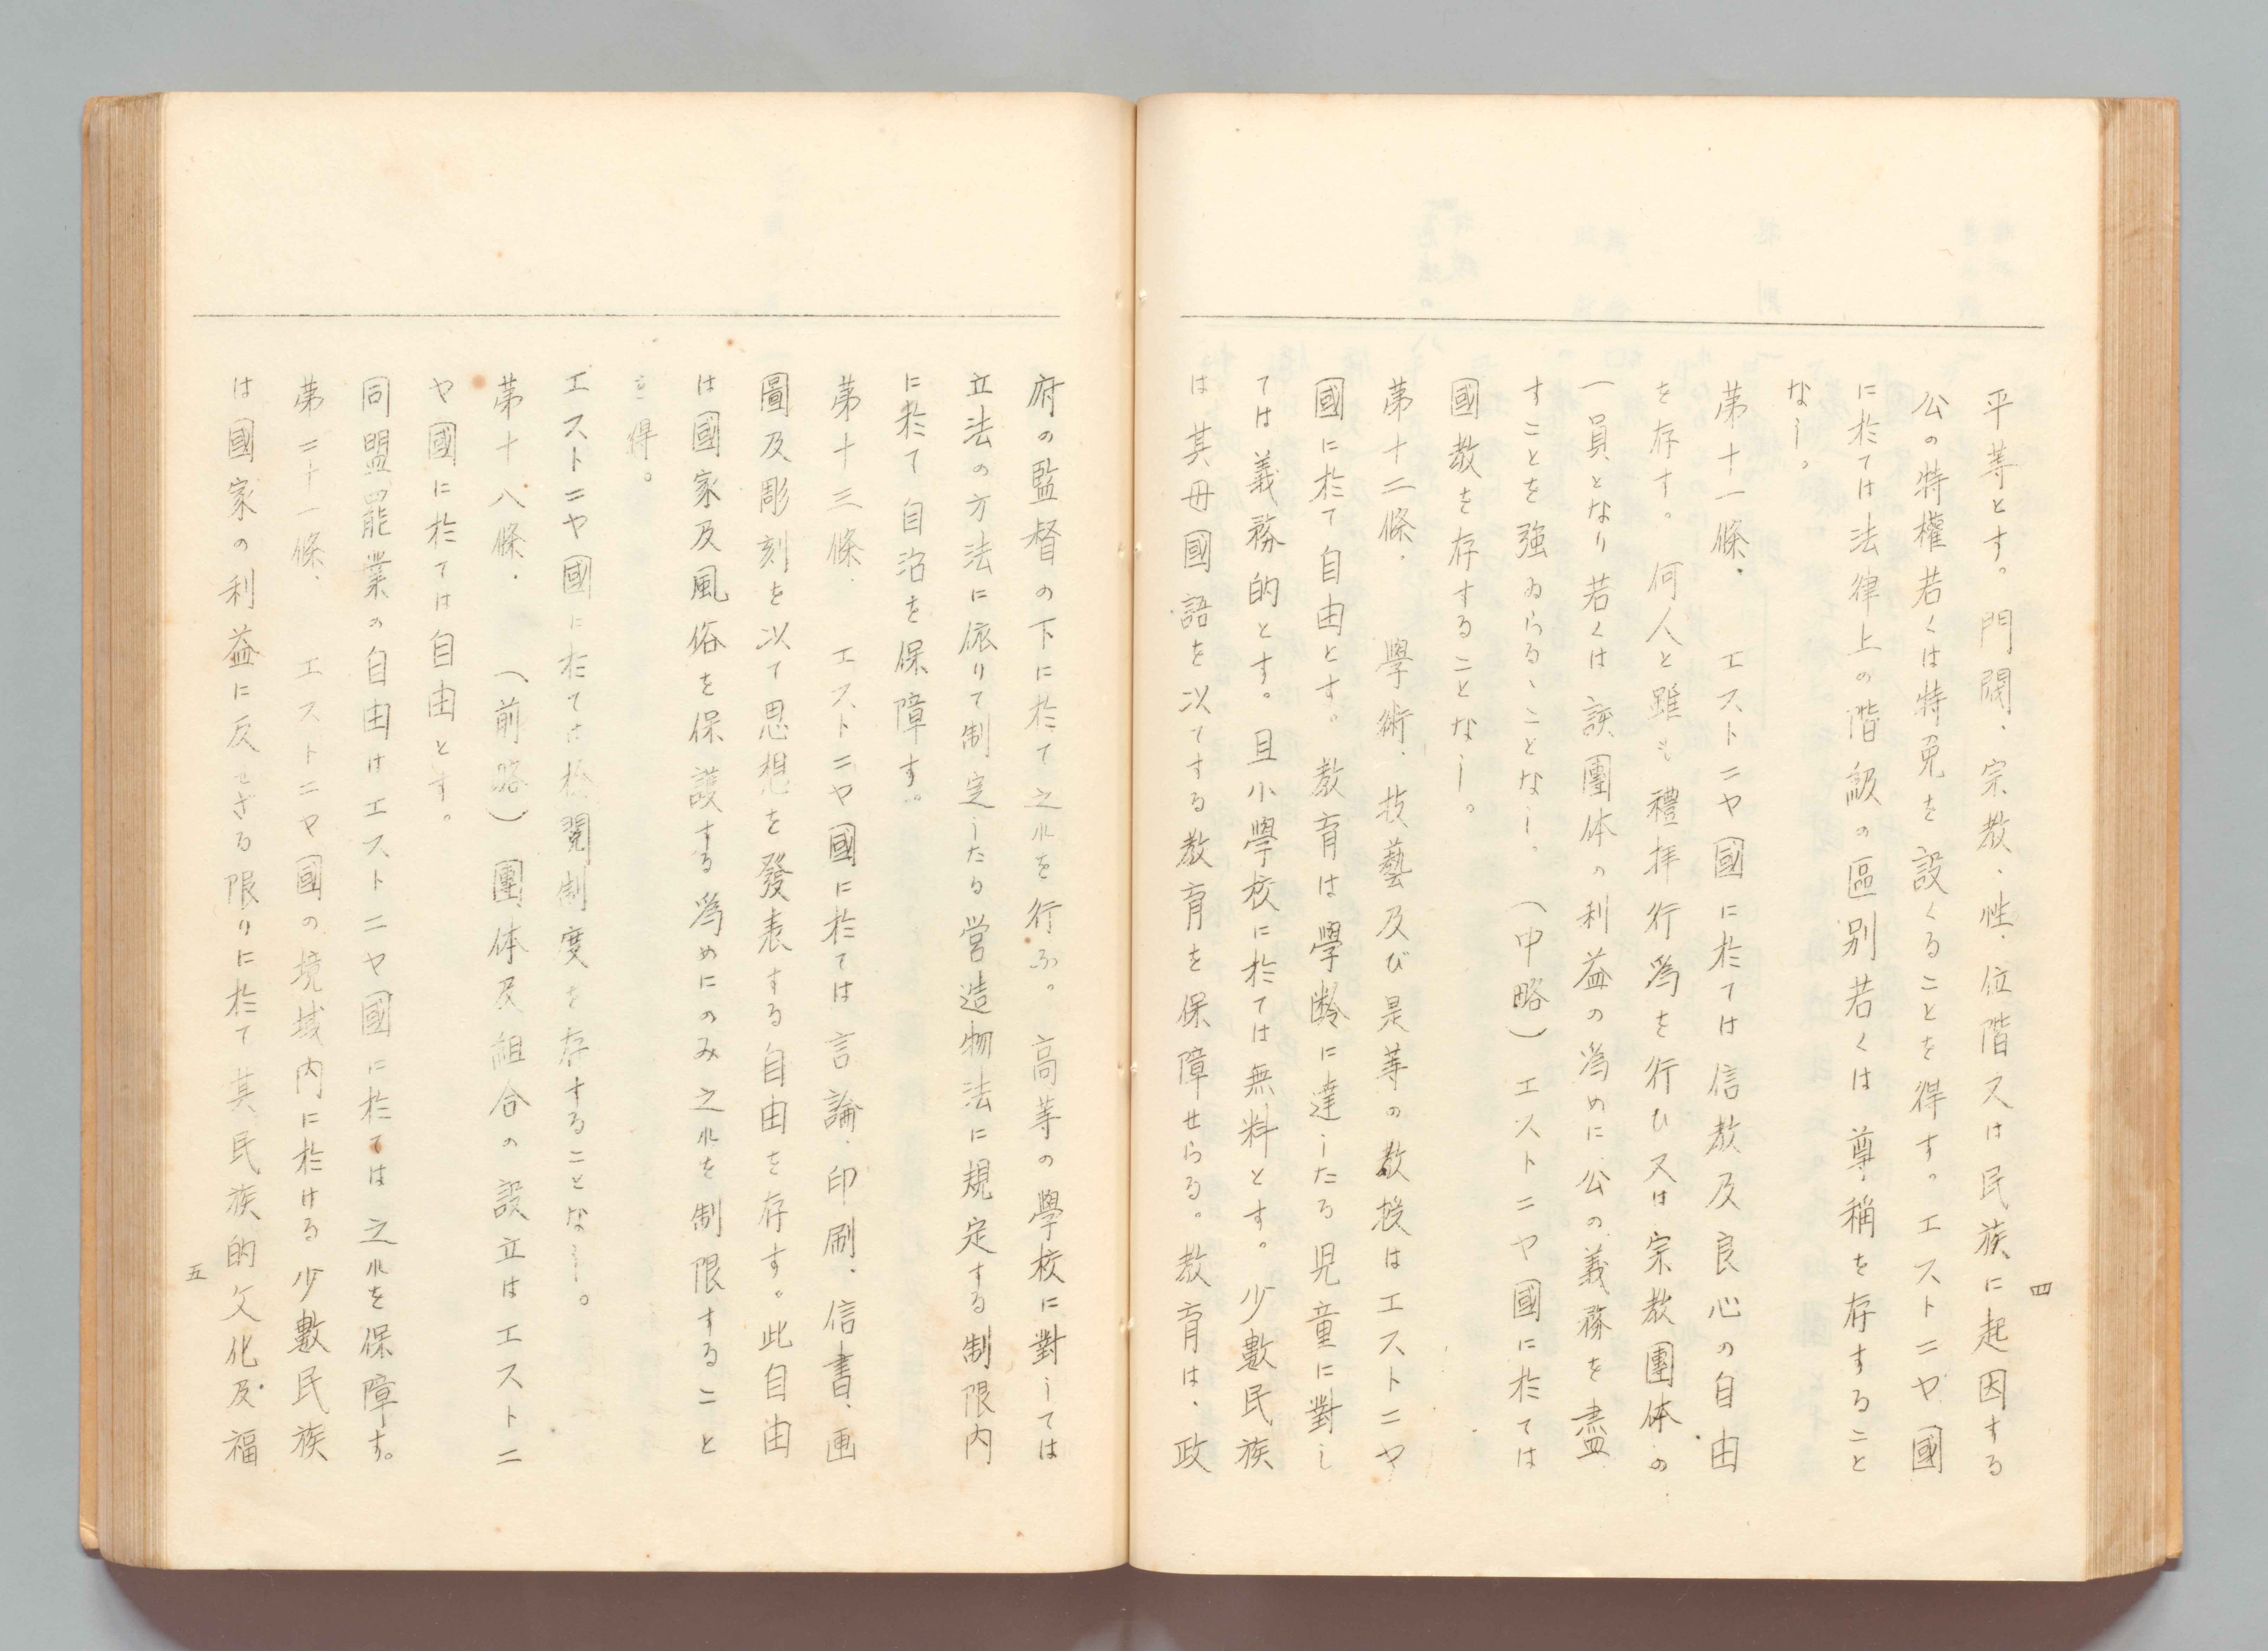 四
平等とす。門閥、宗教、性、位階又は民族に起因する
公の特權若くは特免を設くることを得す。エストニヤ國
に於ては法律上の階級の區別若くは尊稱を存すること
なし。
第十一條、エストニヤ國に於ては信教及良心の自由
を存す。何人と雖も禮拝行爲を行ひ又は宗教團体の
一員となり若くは該團体の利益の爲めに公の義務を盡
すことを強ゐらるゝことなし。(中略)エストニヤ國に於ては
國教を存することなし。
第十二條、學術、技藝及び是等の教授はエストニヤ
國に於て自由とす。教育は學齢に達したる児童に對し
ては義務的とす。且小學校に於ては無料とす。少數民族
は其母國語を以てする教育を保障せらる。教育は、政
府の監督の下に於て之れを行ふ。高等の學校に對しては
立法の方法に依りて制定したる営造物法に規定する制限内
に於て自治を保障す。
第十三條、エストニヤ國に於ては言論、印刷、信書、画
圖及彫刻を以て思想を發表する自由を存す。此自由
は國家及風俗を保護する爲めにのみ之れを制限すること
を得。
エストニヤ國に於ては檢閲制度を存することなし。
第十八條、(前略)團体及組合の設立はエストニ
ヤ國に於ては自由とす。
同盟罷業の自由はエストニヤ國に於ては之れを保障す。
第二十一條、エストニヤ國の境域内に於ける少數民族
は國家の利益に反せざる限りに於て其民族的文化及福
五